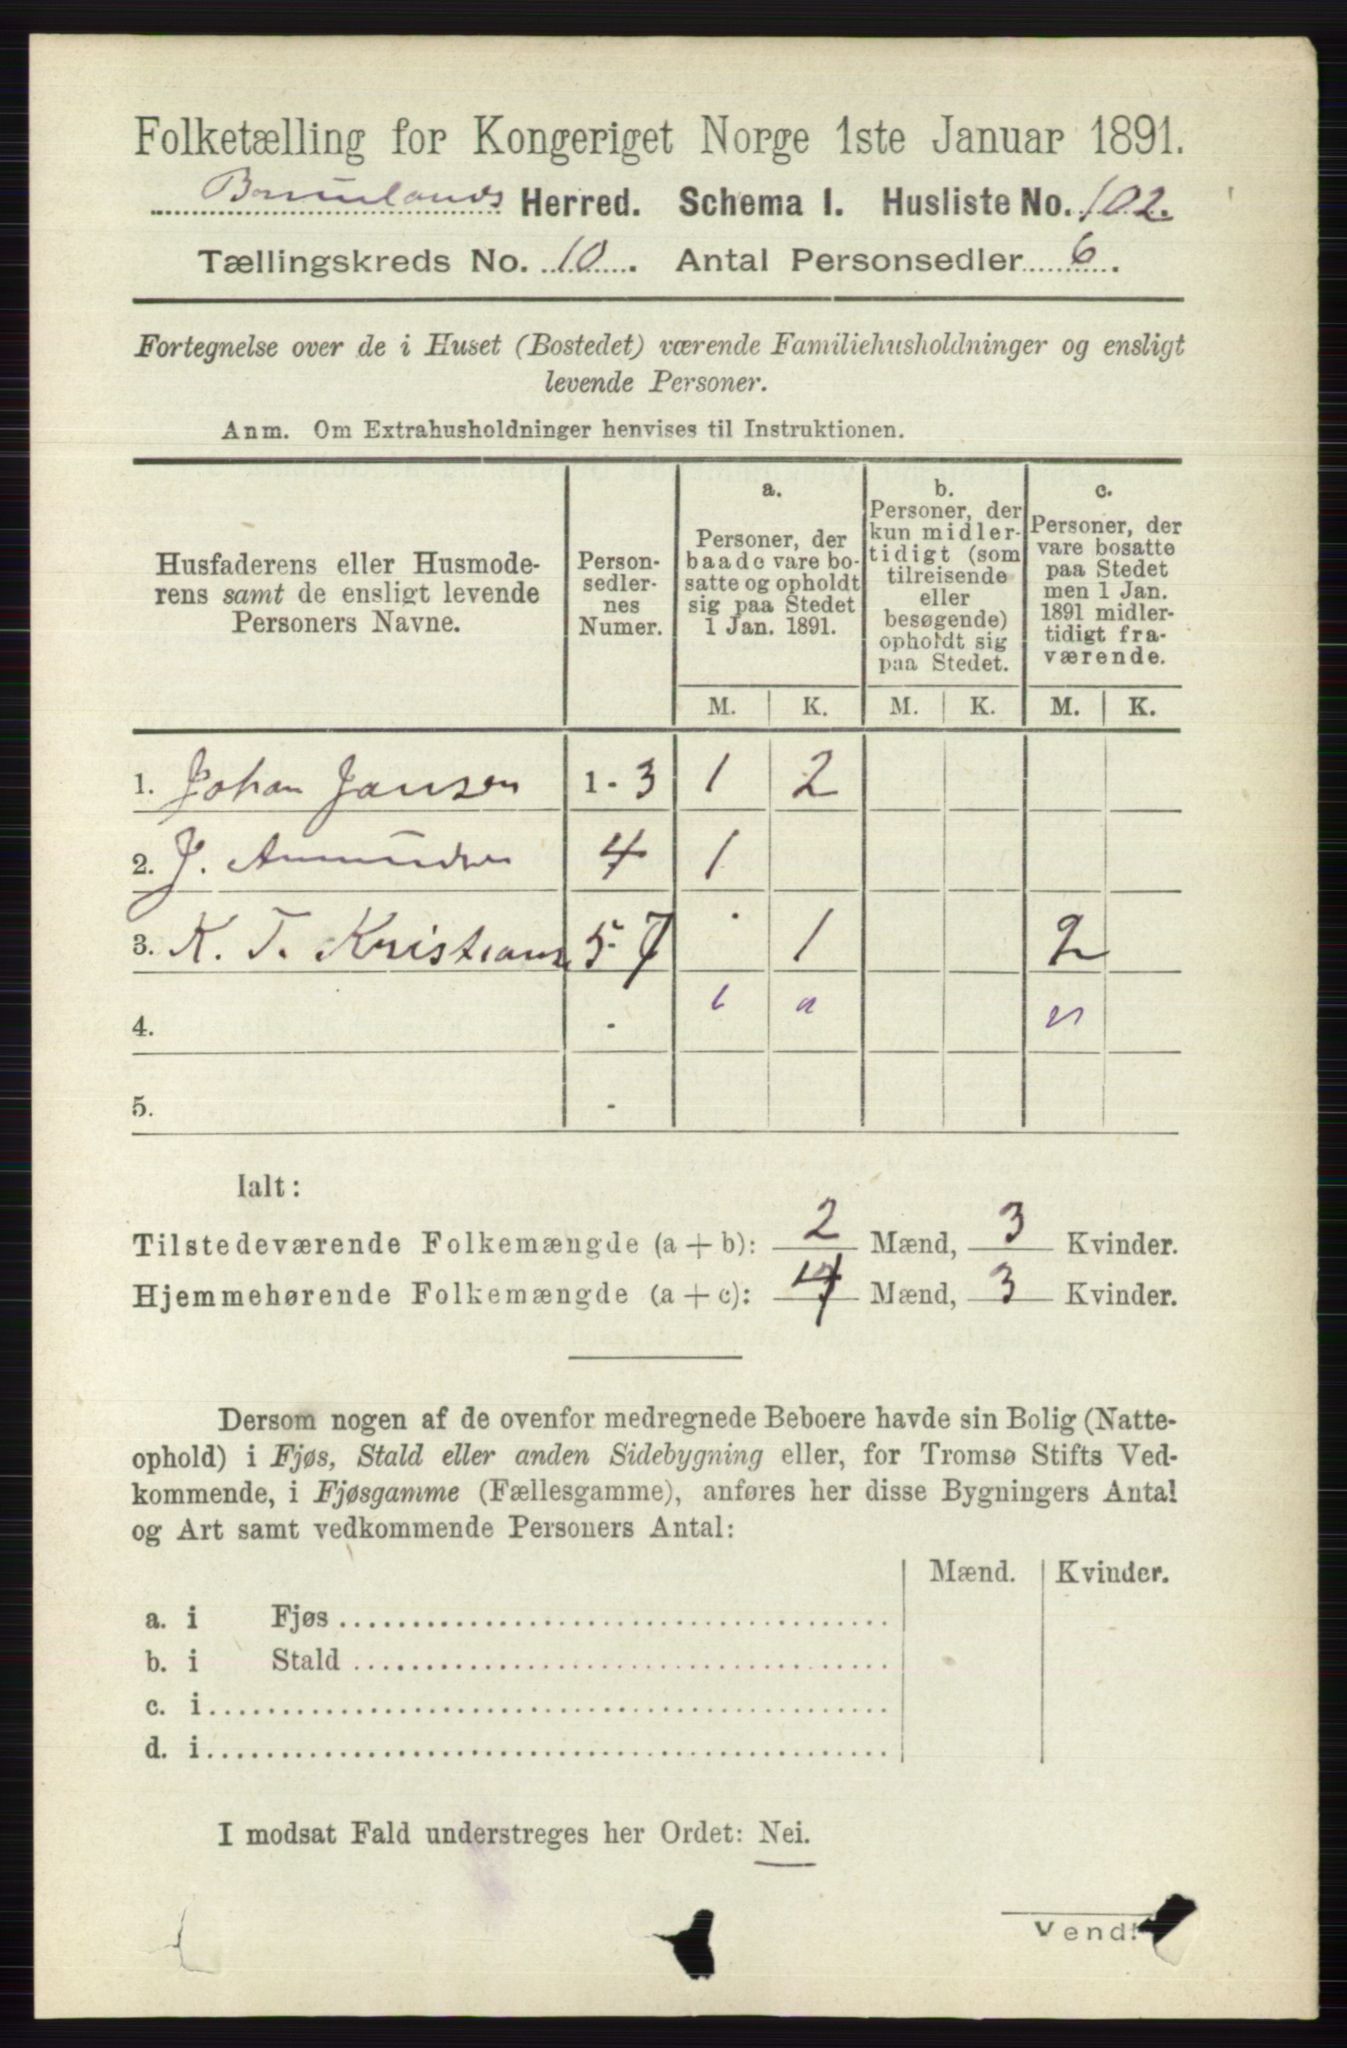 Folketælling for Kongeriget Norge 1ste Januar 1891.
Brunlands Herred. Schema I. Husliste No. 102.
Tællingskreds No. 10. Antal Personsedler 6.
Fortegnelse over de i Huset (Bostedet) værende Familiehusholdninger og ensligt
levende Personer.
Anm. Om Extrahusholdninger henvises til Instruktionen.
Husfaderens eller Husmode-
rens samt de ensligt levende
Personers Navne.
Person-
sedler-
nes
Numer.
a.
Personer, der
baade vare bo-
satte og opholdt
sig paa Stedet
1 Jan. 1891.
b.
Personer, der
kun midler-
tidigt (som
tilreisende
eller
besøgende)
opholdt sig
paa Stedet.
c.
Personer, der
vare bosatte
paa Stedet
men 1 Jan.
1891 midler-
tidigt fra-
værende.
M. K. M. K. M. K.
1. Johan Jansen 1 - 3 1 2
2. J. Amundsen 4 1
3. K. T. Kristians 5-7 1 2
4. -
5. -
Ialt:
Tilstedeværende Folkemængde (a + b): 2 Mænd, 3 Kvinder.
Hjemmehørende Folkemængde (a + c): 4 Mænd, 3 Kvinder.
Dersom nogen af de ovenfor medregnede Beboere havde sin Bolig (Natte-
ophold) i Fjøs, Stald eller anden Sidebygning eller, for Tromsø Stifts Ved-
kommende, i Fjøsgamme (Fællesgamme), anføres her disse Bygningers Antal
og Art samt vedkommende Personers Antal:
Mænd. Kvinder.
a. i Fjøs
b. i Stald
c. i
d. i
I modsat Fald understreges her Ordet: Nei.
Vend!